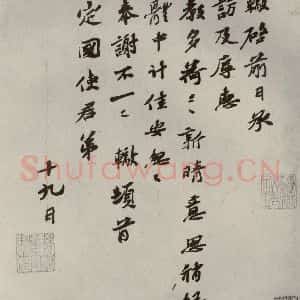 轍啓前日承
訪及辱惠
教多荷〻新晴意思稍
體中計佳安
奉謝不一〻轍頓首
定國使君弟
十九日
Shufawang.CN